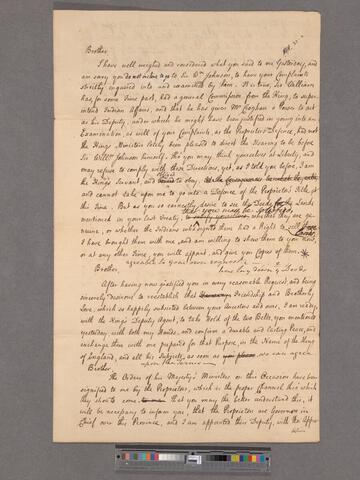 Brother
I have well weighed and considered what you said to me Yesterday, and
am sorry you do not incline to go to Sr Wm Johnson, to have your Complaints
strictly enquired into and examined by him. It is true, Sir William
has, for some time past, had a general Commission from the King, to super-
intend Indian Affairs, and that he has given Mr Croghan a Power to act
as his Deputy, under which he might have been justified in going into an
Examination, as well of your Complaints, as the Proprietors Defence, had not
the Kings Ministers lately been pleased to direct the Hearing to be before
Sir Willm Johnson himself. Tho you may think yourselves at Liberty, and
may refuse to comply with these Directions, yet, as I told you before, I am
the King's Servant, and to obey
and cannot take upon me to go into a Defence of the Proprietors Title, at
this Time. But as you so earnestly desire to see the Deeds for the Lands
mentioned in your last Treaty,
whether they are ge-
nuine, or whether the Indians who signed them had a Right to sell these Lands,
I have brought them with me, and am willing to shew them to you now,
or at any other Time, you will appoint, and give you Copies of them.
agreeable to your own request
Brother,
After having now satisfied you in every reasonable Request, and being
sincerely desirous to reestablish that Friendship and Brotherly
Love, which so happily subsisted between your Ancestors and ours, I am ready,
with the King's Deputy Agent, to take hold of the two Belts, you mentioned
yesterday, with both my Hands, and confirm a durable and lasting Peace, and
exchange them with one prepared for that Purpose, in the Name of the King
of England, and all his Subjects, as soon as we can agree
upon the Terms
Brother
The Orders of his Majesty's Ministers on this Occasion have been
signified to me by the Proprietors, which is the proper Channel thro which
they shou'd come. That you may the better understand this, it
will be necessary to inform you, that the Proprietors are Governors in
Chief over this Province, and I am appointed their Deputy, with the Appro-